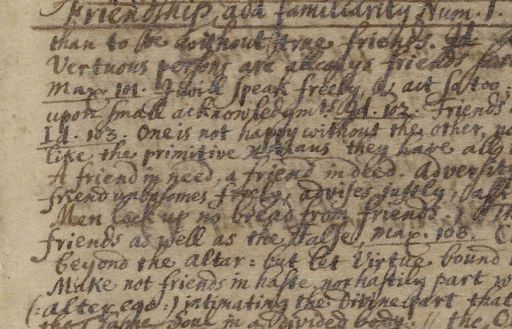 Friendship, and familiarity Num. 1.
than to be without true friends.
Vertuous persons are always friends
Max. 101. I will speak freely, & act so too;
upon small acknowledgmts Id. 102. Friends
Id. 103. One is not happy without the other,
like the primitive Xtians they have all
A friend in need, a friend indeed. adversity
friend unbosomes freely, advises justly,
Men lock up no bread from friends.
friends as well as the false, Max. 108.
beyond the Altar: but let Virtue bound
Make not friends in haste, nor hastily part
(: alter ego :) intimating the Divine part that
the same Soul in a divided body. // the